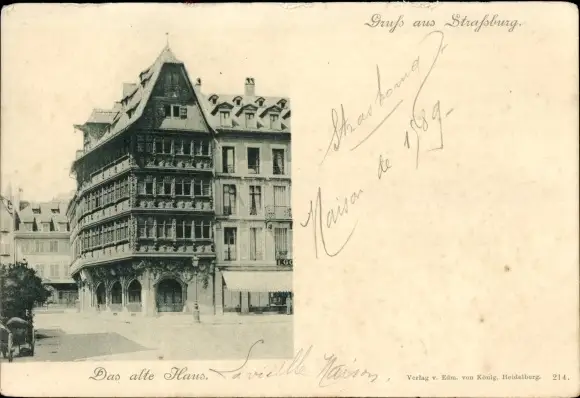 Gruß aus Straßburg.
Strasbourg
Maison de 1589-
Das alte Haus. La vieille Maison.
Verlag v. Edm. von König, Heidelberg. 214.